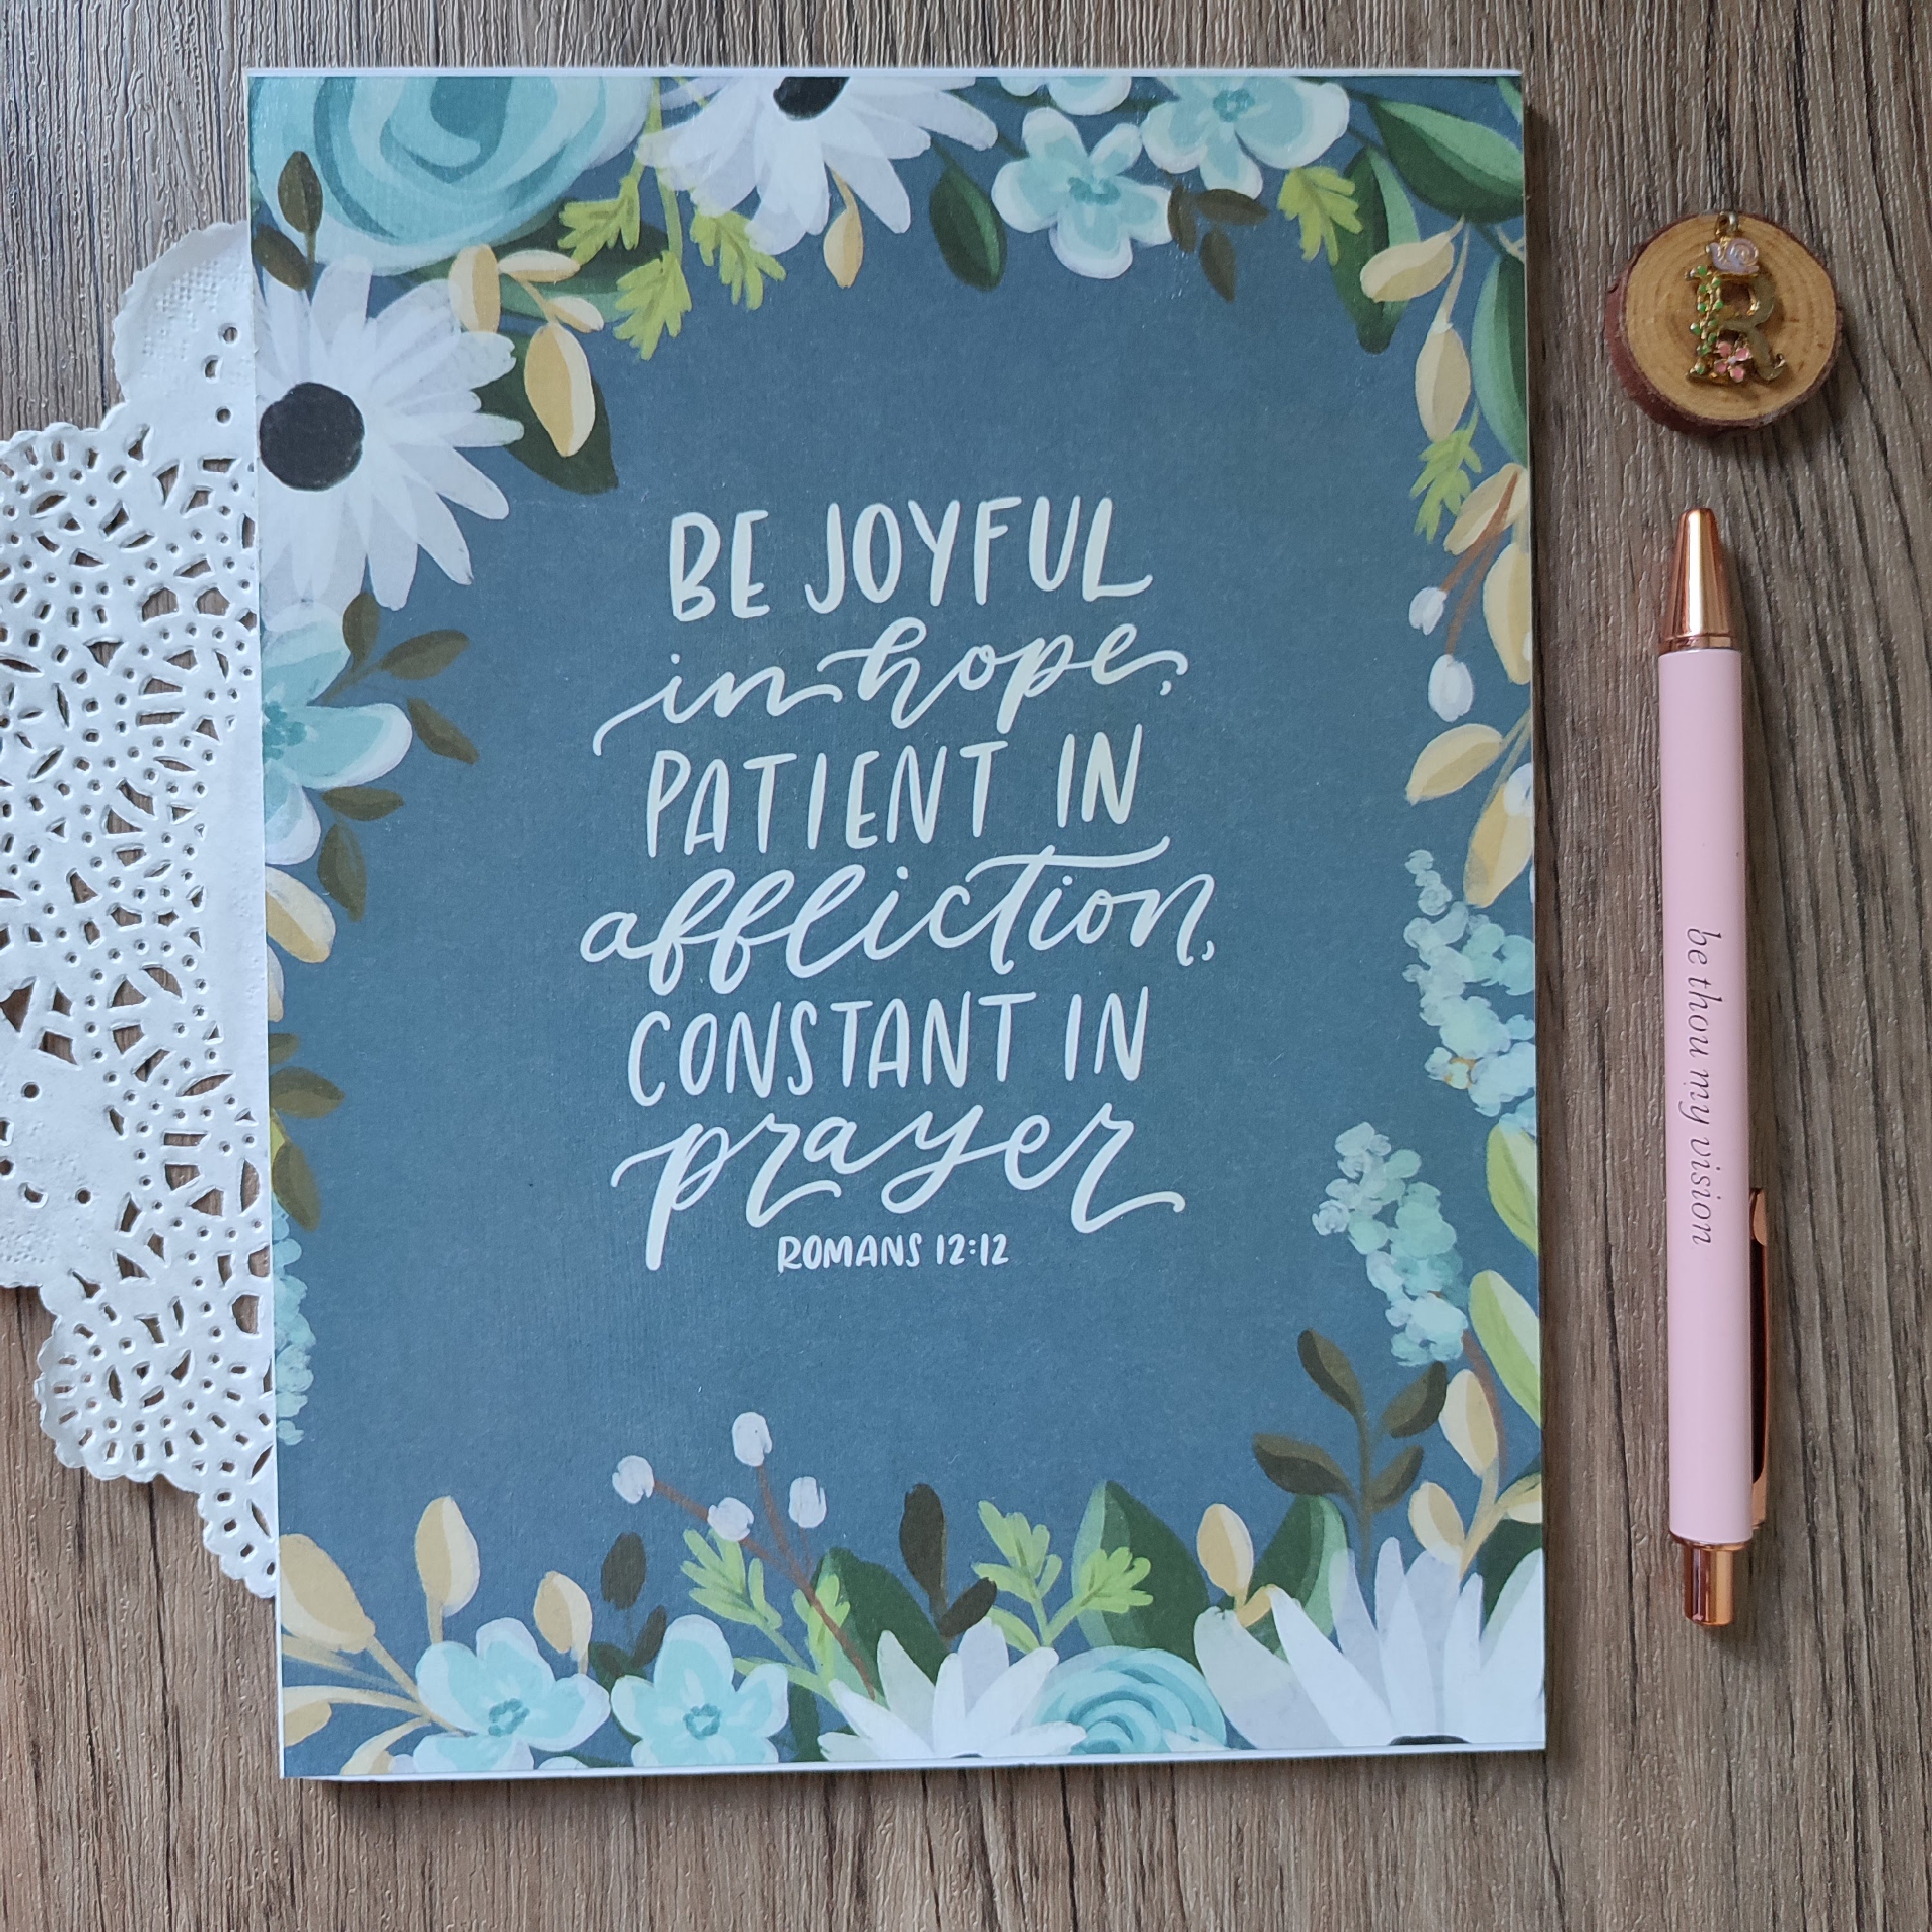 BE JOYFUL
in hope,
PATIENT IN
affliction,
CONSTANT IN
prayer
ROMANS 12:12
R
be thou my vision